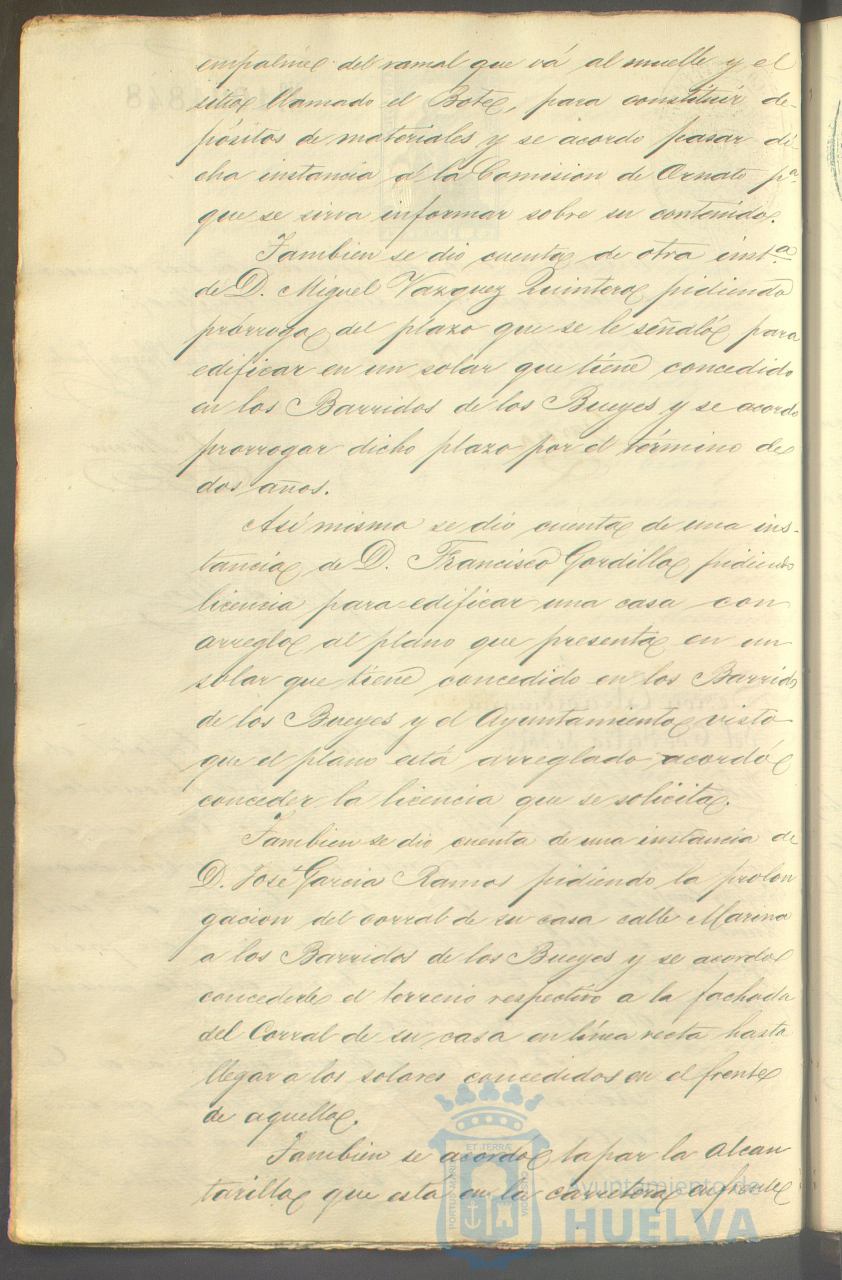 empalme del ramal que vá al muelle y el
sitio llamado el Bote, para constituir de-
pósitos de materiales y se acordo pasar di-
cha instancia á la Comision de Ornato pª
que se sirva informar sobre su contenido.
Tambien se dio cuenta de otra instª
de D. Miguel Vazquez Quintero pidiendo
prórroga del plazo que se le señaló para
edificar en un solar que tiene concedido
en los Barridos de los Bueyes y se acordo
prorrogar dicho plazo por el término de
dos años.
Asi mismo se dio cuenta de una ins-
tancia de D. Francisco Gordillo pidiendo
licencia para edificar una casa con
arreglo al plano que presenta en un
solar que tiene concedido en los Barridos
de los Bueyes y el Ayuntamiento visto
que el plano está arreglado acordó
conceder la licencia que se solicita.
Tambien se dio cuenta de una instancia de
D. José Garcia Ramos pidiendo la prolon
gacion del corral de su casa calle Marina
a los Barridos de los Bueyes y se acordo
concederle el terreno respectivo a la fachada
del Corral de su casa en linea recta hasta
llegar a los solares concedidos en el frente
de aquella.
Tambien se acordo tapar la alcan
tarilla que está en la carretera defrente
PORTUS MARIS ET TERRÆ CUSTODIA
Ayuntamiento de
HUELVA